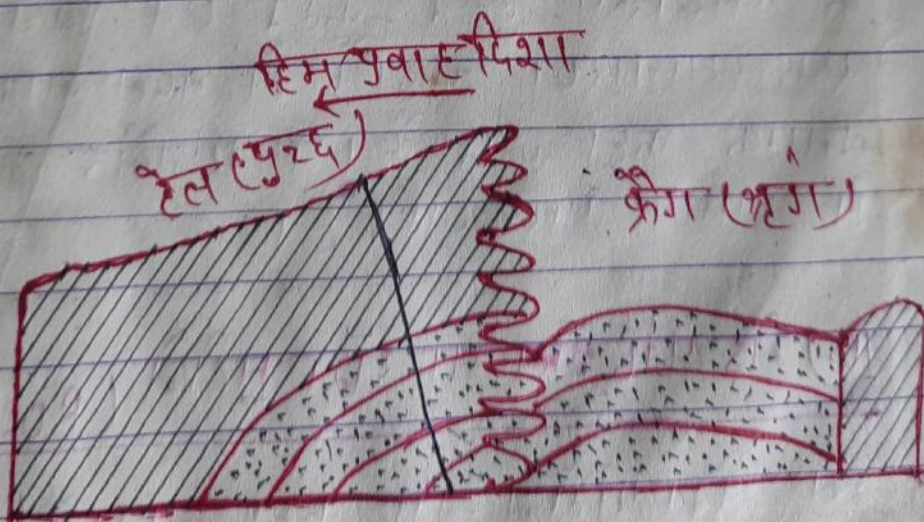 हिम प्रवाह दिशा
टेल (पुच्छ)
क्रैग (श्रृंग)